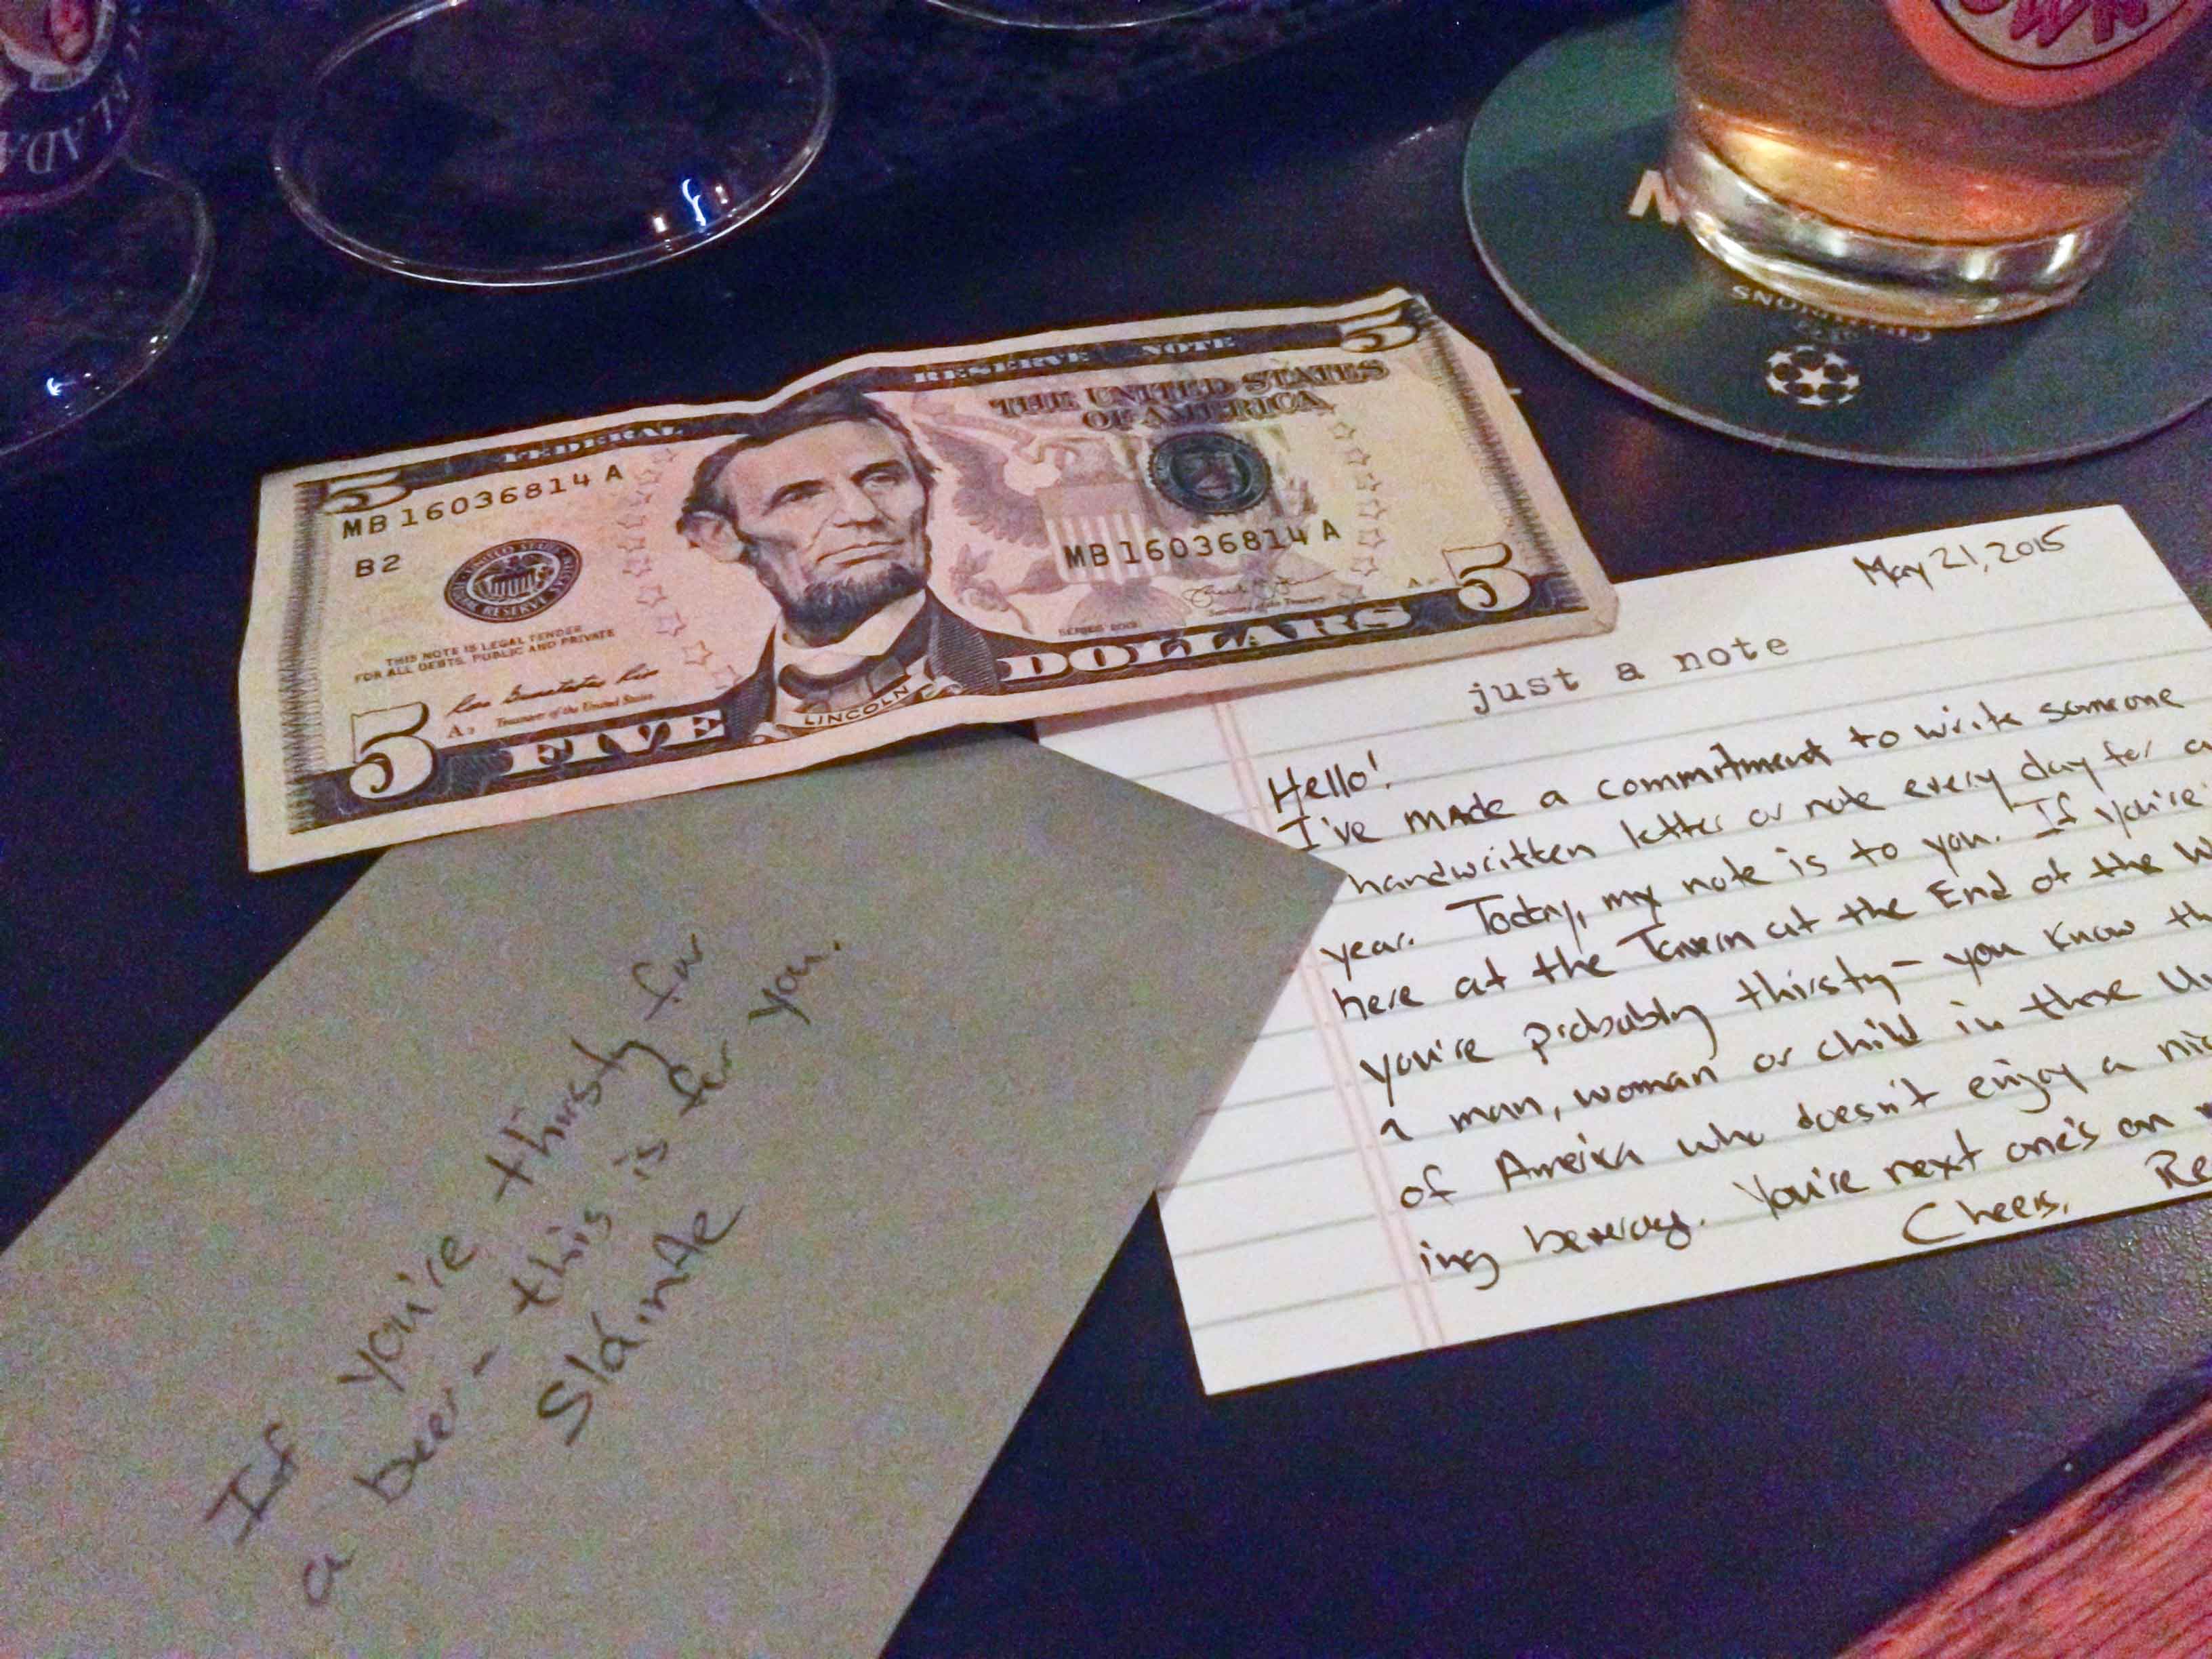 OWN
CHAMPIONS
FEDERAL RESERVE NOTE
5
5
THE UNITED STATES
OF AMERICA
MB 16036814 A
B2
MB 16036814 A
THIS NOTE IS LEGAL TENDER
FOR ALL DEBTS, PUBLIC AND PRIVATE
Treasurer of the United States
SERIES
LINCOLN
5
FIVE DOLLARS
5
May 21, 2015
just a note
Hello!
I've made a commitment to write someone
handwritten letter or note every day for a
year. Today, my note is to you. If you're
here at the Tavern at the End of the W
you're probably thirsty - you know th
a man, woman or child in these Un
of America who doesn't enjoy a nic
ing beverage. You're next one's on m
Cheers, Re
If you're thirsty for
a beer - this is for you.
Sláinte